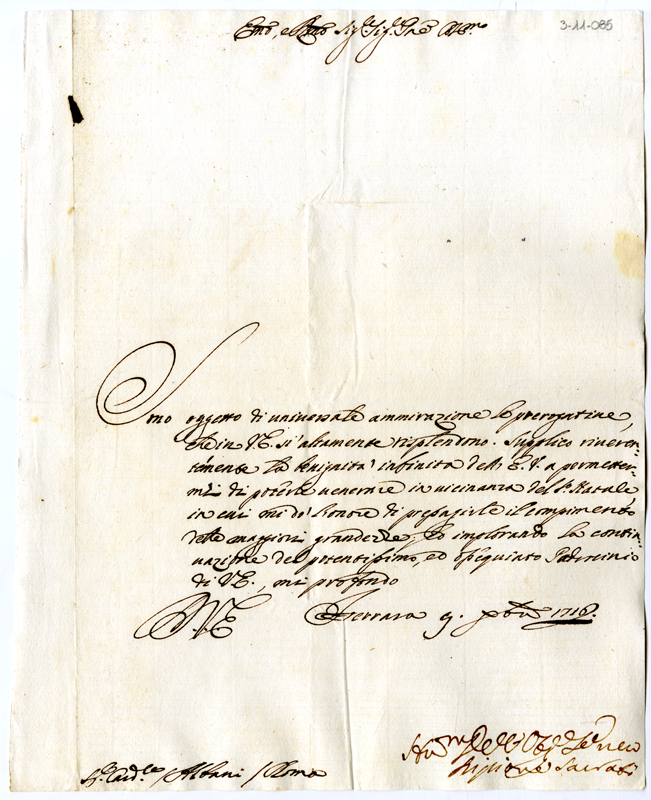 3-11-085
Emo, e Rmo Sig.r Sig.r Pne Col.mo
Sono oggetto di universale ammirazione le prerogatiue,
che in V.E. si altamente risplendono. Supplico riueren-
temente la benignità infinita dell' E.V. a permetter-
mi di poterle uenerare in uicinanza del S. Natale,
in cui mi dò l'honore di presagirle il compimento
delle maggiori grandezze; ed implorando la conti-
nuazione del potentissimo, ed ossequiato Padrocinio
di V.E., mi profondo
D.V.E. Ferrara 9. Xbre 1716.
Hu.mo Deu.mo Obg.mo Se.re uero
Sacrati
S.r Card.le Albani / Roma